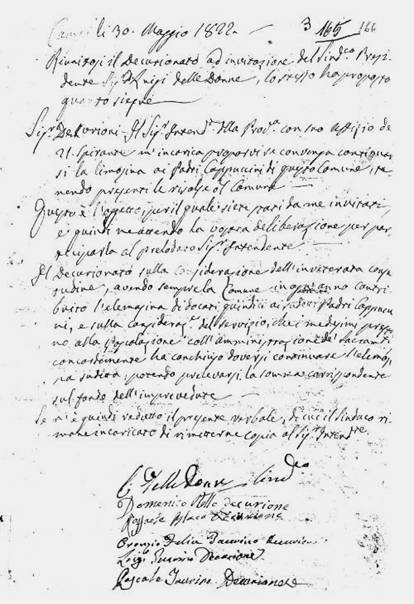 li 30. Maggio 1822 3 165 166
Riunitosi il Decurionato ad invitazione del Sindco Presi
dente Sigr Luigi delle Donne, lo stesso ha proposto
quanto siegue
Sigri Decurioni = Il Sigr Intendte della Provia con suo uffizio de
21 spirante m'incarica proporvi se convenga continuar
si la limosina ai Padri Cappuccini di questo Comune, te
nendo presenti le risorse al Comune
Questo è l'oggetto, per il quale siete stati da me invitati
e quindi ne attendo la vostra deliberazione per par
teciparla al prelodato Sigr Intendente
Il Decurionato sulla considerazione dell'inveterata consue
tudine, avendo sempre la Comune in ogni anno contri
buito l'elemosina di docati quindici ai Padri Cappucci
ni, e sulla consideraz.e del servizio, che i medesimi presta
no alla Popolazione coll'amministrazione de' Sacramti
concordemente ha conchiuso doversi continuare l'elemosi
na sudetta, potendo prelevarsi la somma corrispondente
sul fondo dell'imprevedute
Se n'è quindi redatto il presente verbale, di cui il Sindaco ri
mane incaricato di rimetterne copia al Sigr Intendte
L. Delle Donne Sindco
Domenico decurione
Decurione
Oronzio Felia Taurino Decurione
Luigi Decurione
Pascale Taurino Decurione